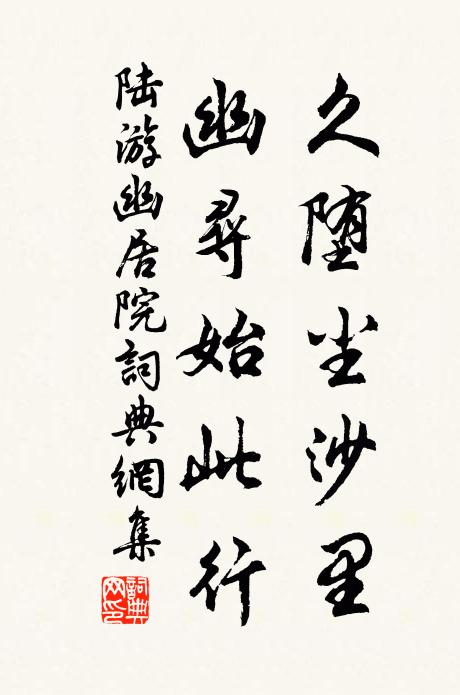 久堕尘沙里
幽寻始此行
陆游幽居院词典網集
詞典
网印